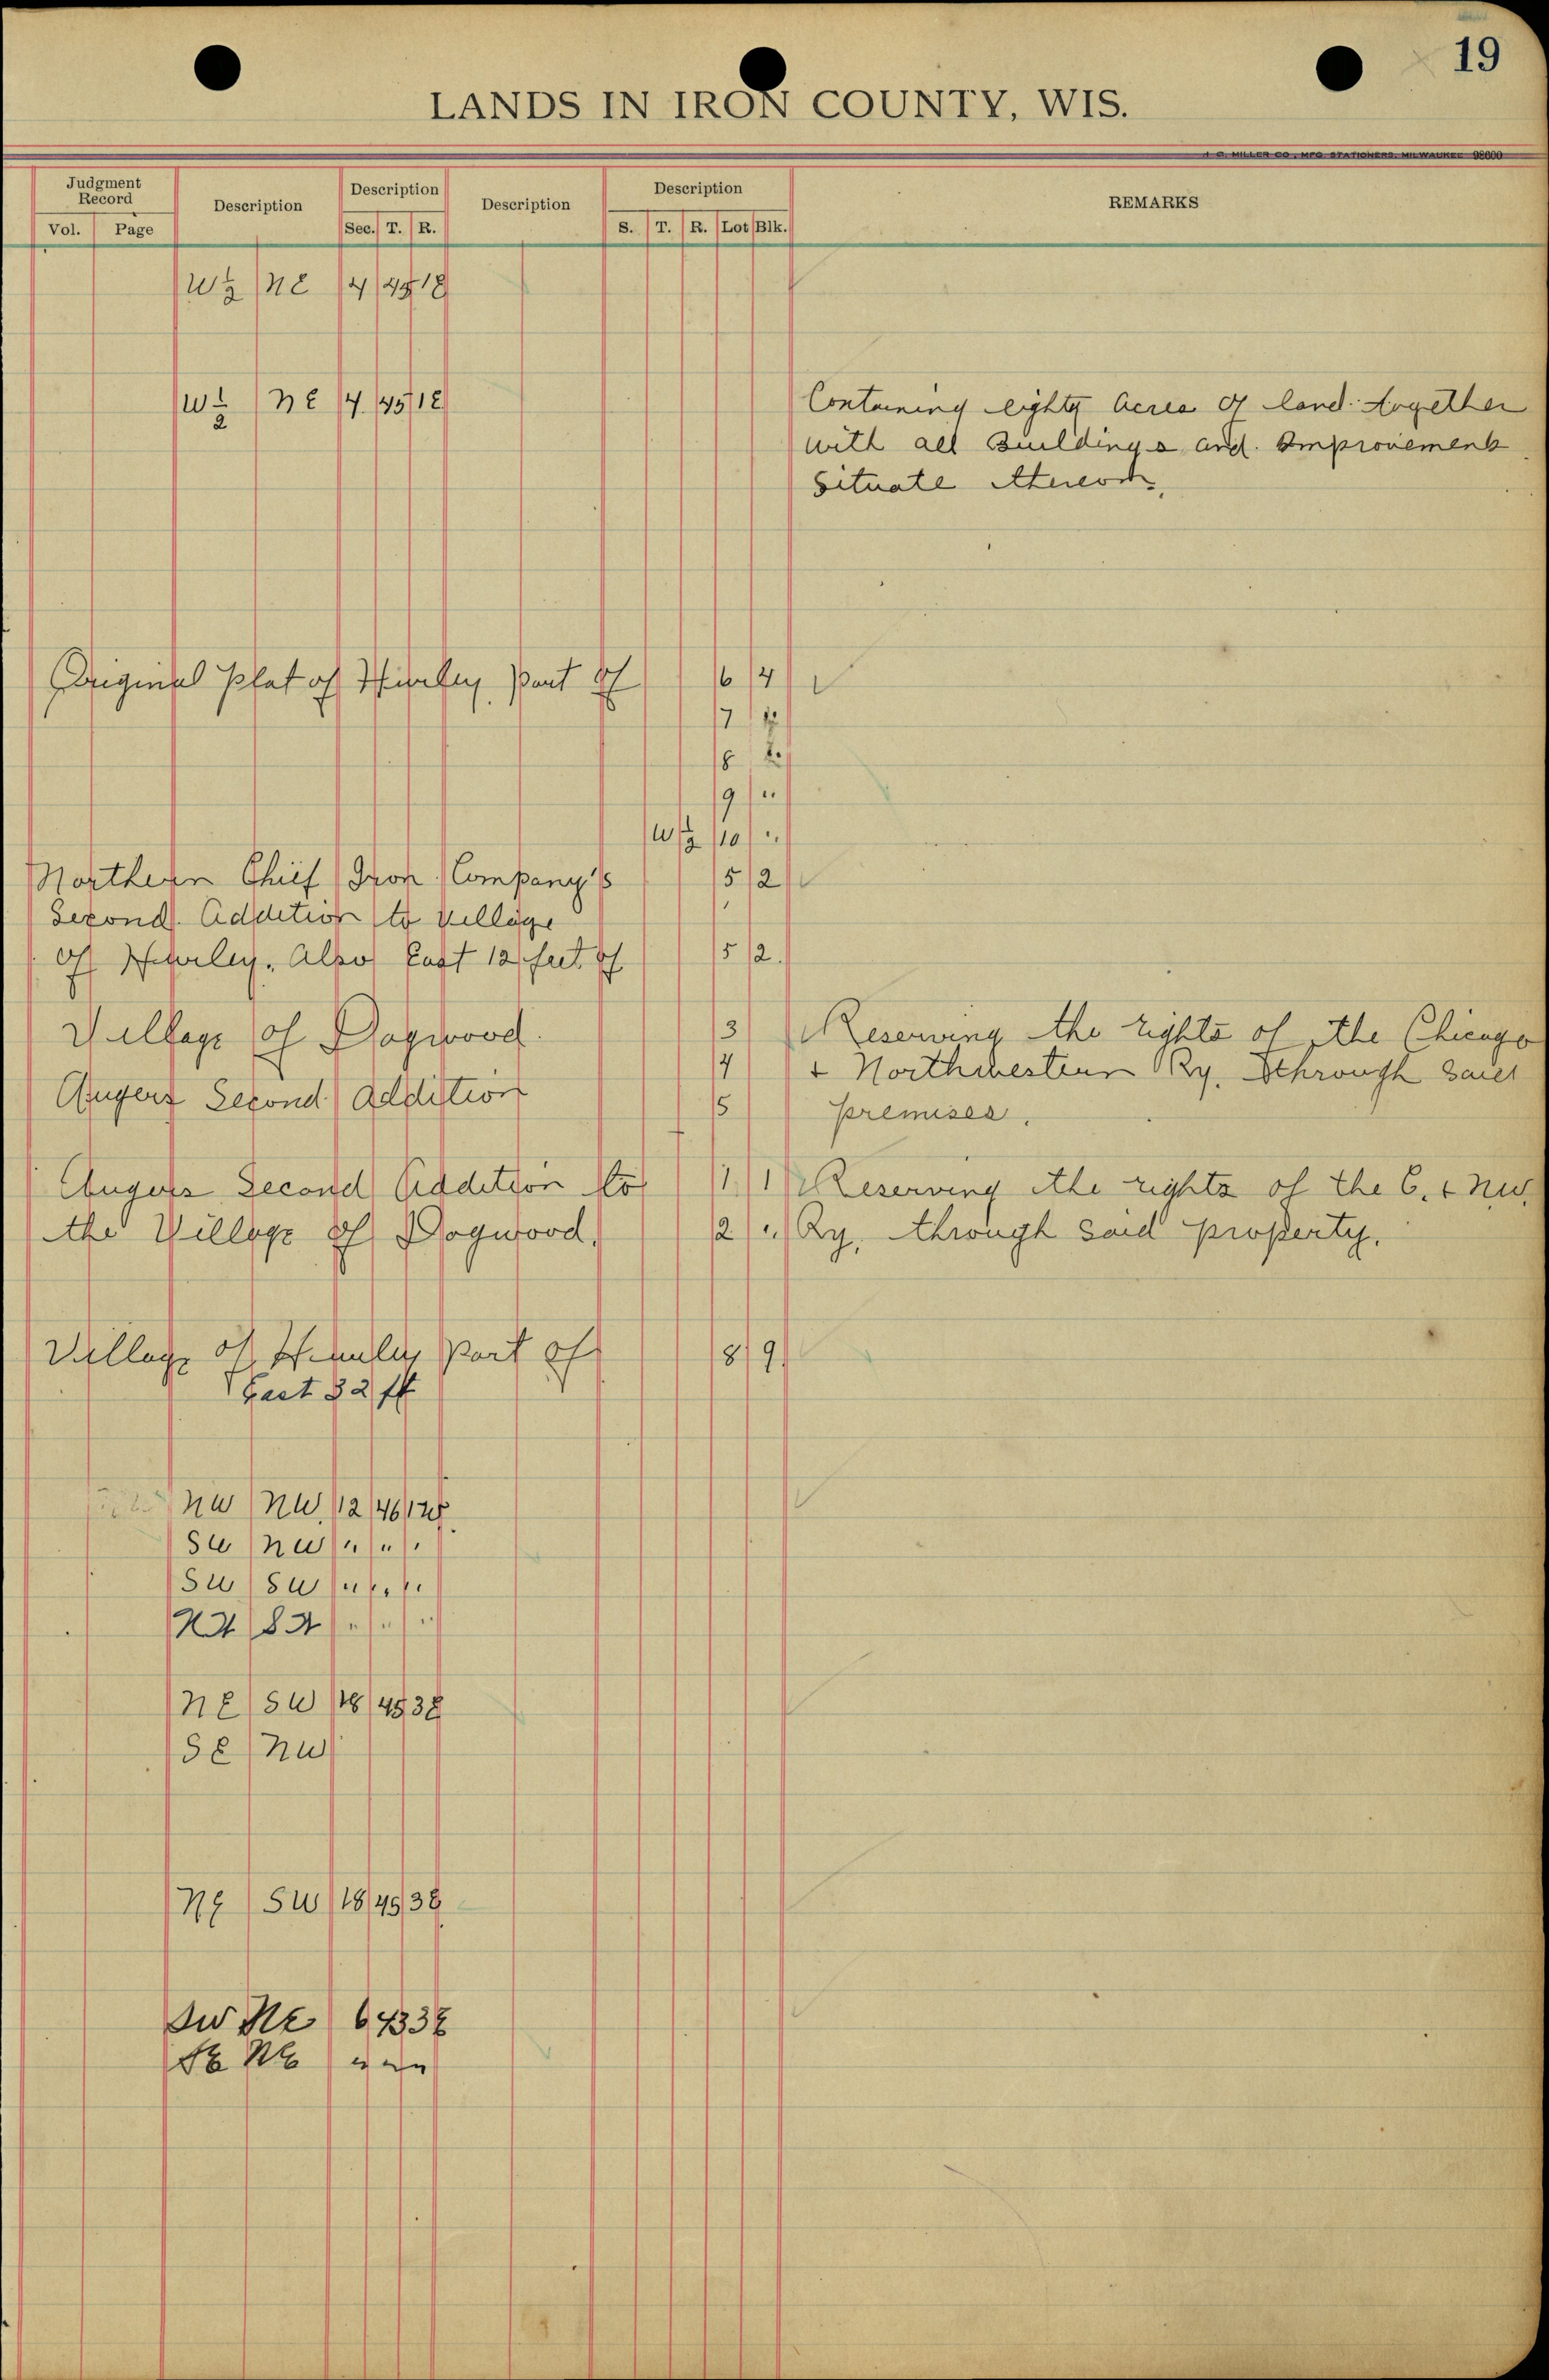 19
LANDS IN IRON COUNTY, WIS.
H. G. MILLER CO., MFG. STATIONERS, MILWAUKEE 98600
Judgment Record Description Description Description Description REMARKS
Vol. Page Sec. T. R. S. T. R. Lot Blk.
W½ NE 4 45 1E
W½ NE 4 45 1E Containing eighty acres of land together
with all Buildings and Improvements
Situate thereon,
Original Plat of Hurley Part of 6 4
7
8
9 "
W½ 10 "
Northern Chief Iron Company's 5 2
Second Addition to Village
of Hurley. Also East 12 feet of 5 2.
Village of Dogwood. 3 Reserving the rights of the Chicago
4 + Northwestern Ry. through said
Angers Second Addition 5 premises.
Angers Second Addition to 1 1 Reserving the rights of the C. + NW.
the Village of Dogwood. 2 " Ry. through said property.
Village of Hurley Part of 8 9
East 32 ft
NW NW 12 46
SW NW " " "
SW SW " " "
" " "
NE SW 18 45 3E
SE NW
NE SW 18 45 3E
SW NE 6 43 3E
SE NE " " "